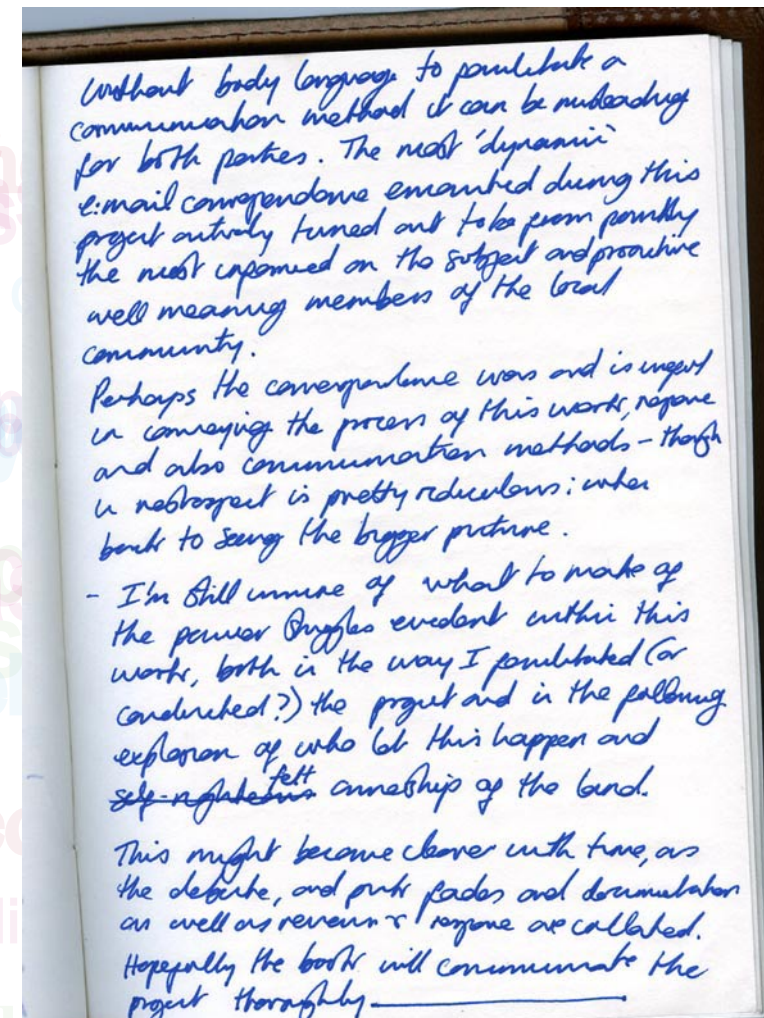 Without body language to facilitate a
communication method it can be misleading
for both parties. The most 'dynamic'
e:mail correspondance encountered during this
project actively turned out to be from possibly
the most informed on the subject and proactive
well meaning members of the local
community.
Perhaps the correspondence was and is urgent
in conveying the process of this work, response
and also communication methods - though
in retrospect is pretty rediculous: when
back to seeing the bigger picture.
- I'm still unsure of what to make of
the power struggles evident within this
work, both in the way I facilitated (or
conducted?) the project and in the following
explosion of who let this happen and
self-righteous felt ownership of the land.
This might become clearer with time, as
the debate, and pink fades and documentation
as well as reviews & response are collated.
Hopefully the book will communicate the
project thoroughly